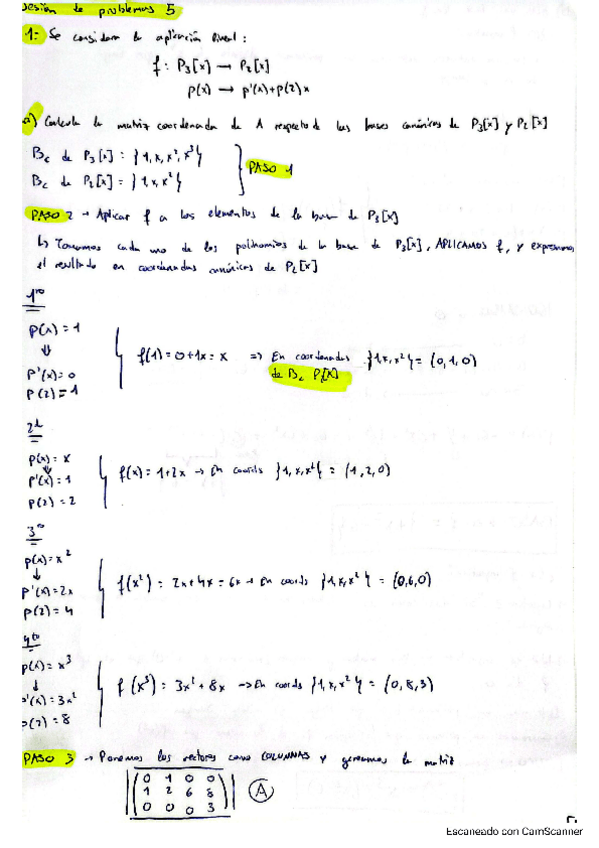 Sesión de problemas 5
1.- Se considera la aplicación lineal:
f: P3[x] → P2[x]
p(x) → p'(x)+p(2)x
a) Calcula la matriz coordenada de A respecto de las bases canónicas de P3[x] y P2[x]
Bc de P3[x] : {1, x, x², x³}
Bc de P2[x] = {1, x, x²}
PASO 1
PASO 2 → Aplicar f a los elementos de la base de P3[x]
↳ Tomamos cada uno de los polinomios de la base de P3[x], APLICAMOS f, y expresamos
el resultado en coordenadas canónicas de P2[x]
1ro
p(x) = 1
⇓
p'(x) = 0
p(2) = 1
f(1) = 0+1x = x ⇒ En coordenadas {1,x,x²} = (0,1,0)
de Bc P2[x]
2º
p(x) = x
↓
p'(x) = 1
p(2) = 2
f(x) = 1+2x → En coords {1,x,x²} = (1,2,0)
3º
p(x) = x²
↓
p'(x) = 2x
p(2) = 4
f(x²) = 2x+4x = 6x → En coords {1,x,x²} = (0,6,0)
4to
p(x) = x³
↓
p'(x) = 3x²
p(2) = 8
f(x³) = 3x²+8x → En coords {1,x,x²} = (0,8,3)
PASO 3 → Ponemos los vectores como COLUMNAS y generamos la matriz
0 1 0 0
1 2 6 8
0 0 0 3
A
Escaneado con CamScanner